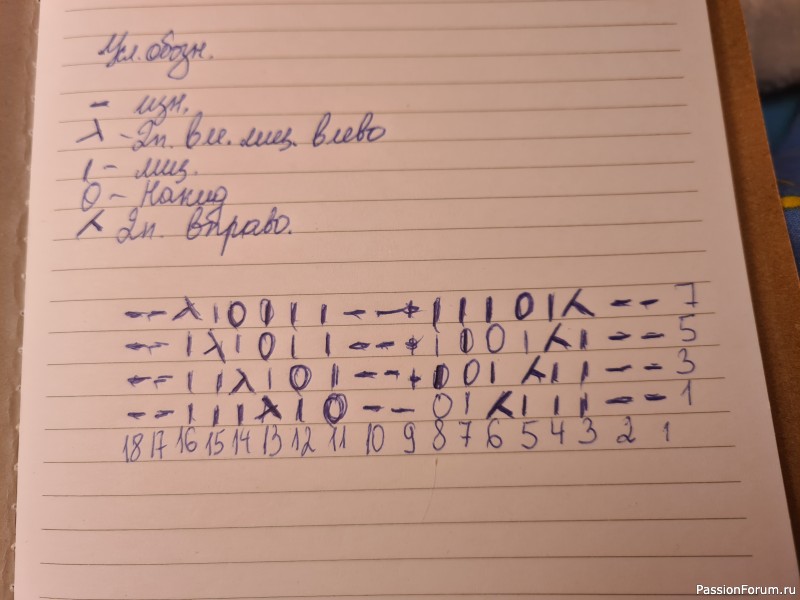 Усл. обозн.
- изн.
λ - 2п. вм. лиц. влево
| - лиц.
O - Накид
⋌ 2п. вправо.
- - λ | O | | | - - - | | | O | ⋌ - - 7
- - | λ | O | | - - - | O O | ⋌ | - - 5
- - | | λ | O | - - - O O | ⋌ | | - - 3
- - | | | λ | O - - O | ⋌ | | | - - 1
18 17 16 15 14 13 12 11 10 9 8 7 6 5 4 3 2 1
PassionForum.ru